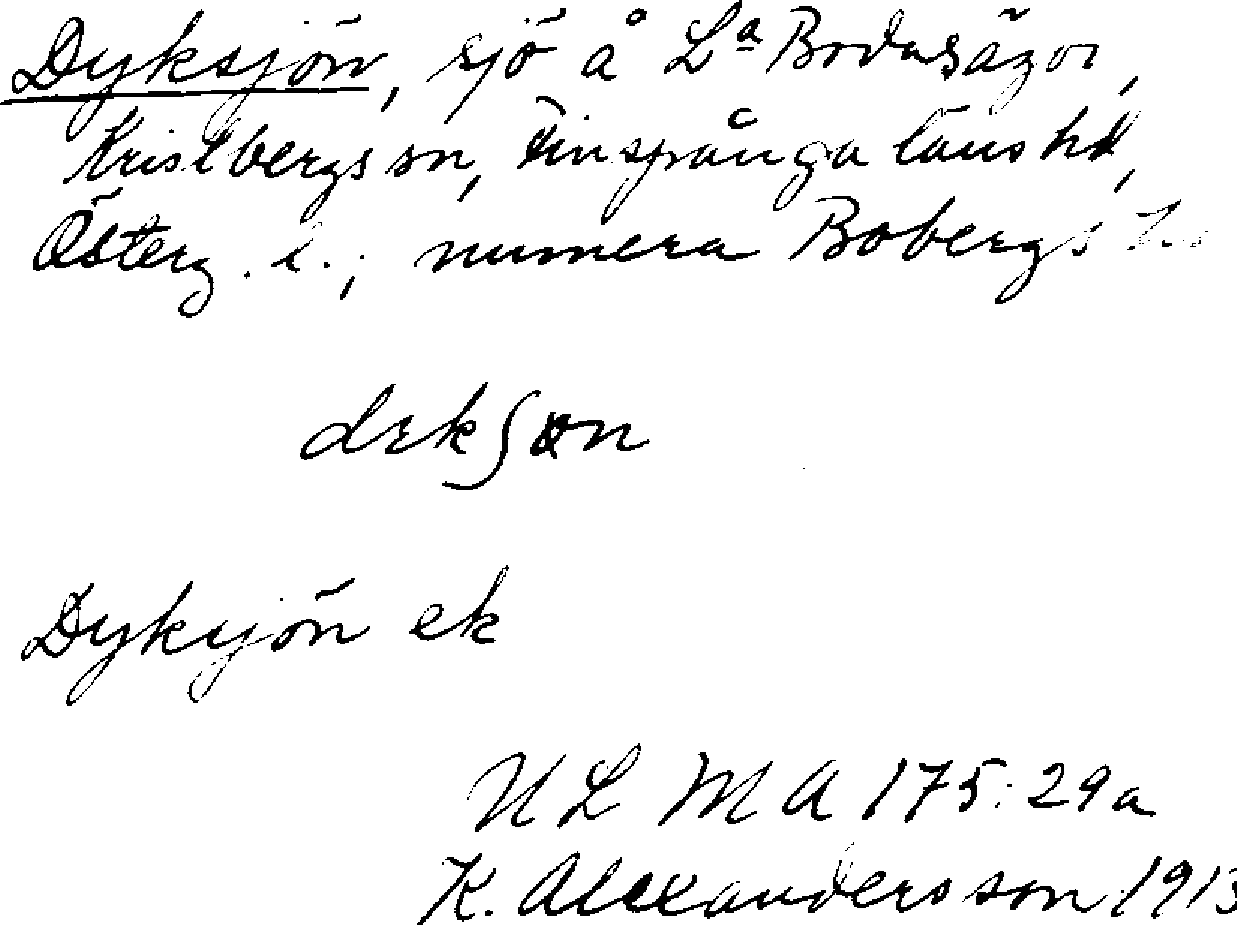 Dyksjön, sjö å La Bodasägor,
Kristbergs sn, Finspånga läns hd,
Österg. l.; numera Bobergs
Dyksjön ek
ULMA 175:29a
K. Alexandersson 1913